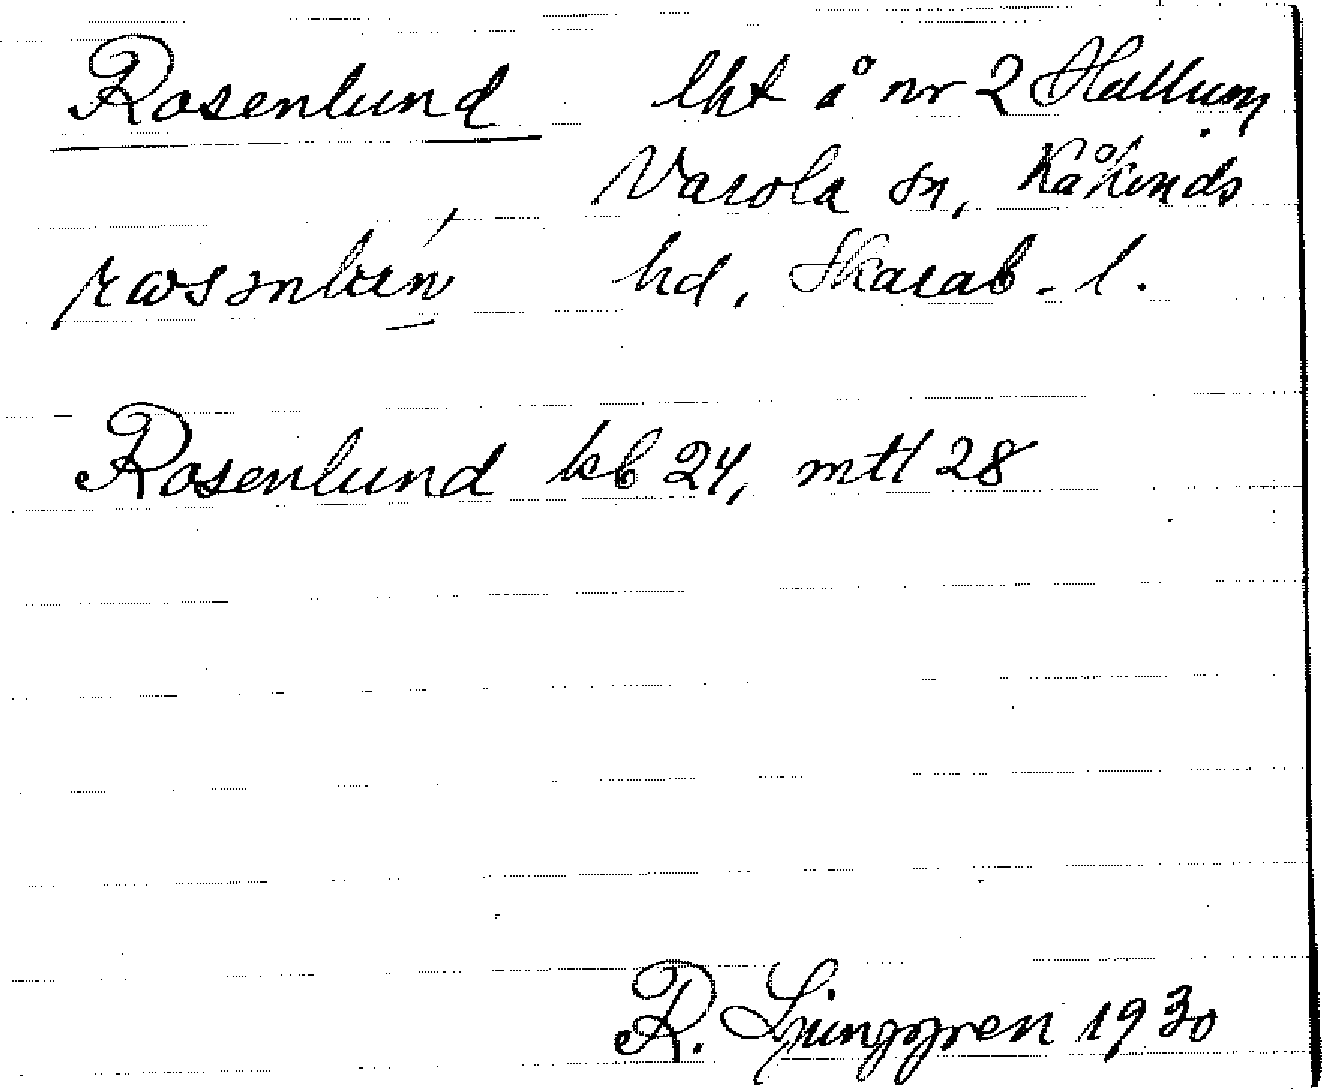 Rosenlund lht å nr 2 Hallum,
Varola sn, Kåkinds
rωsənlun hd, Skarab. l.
Rosenlund kb 24, mtl 28
R. Ljunggren 1930